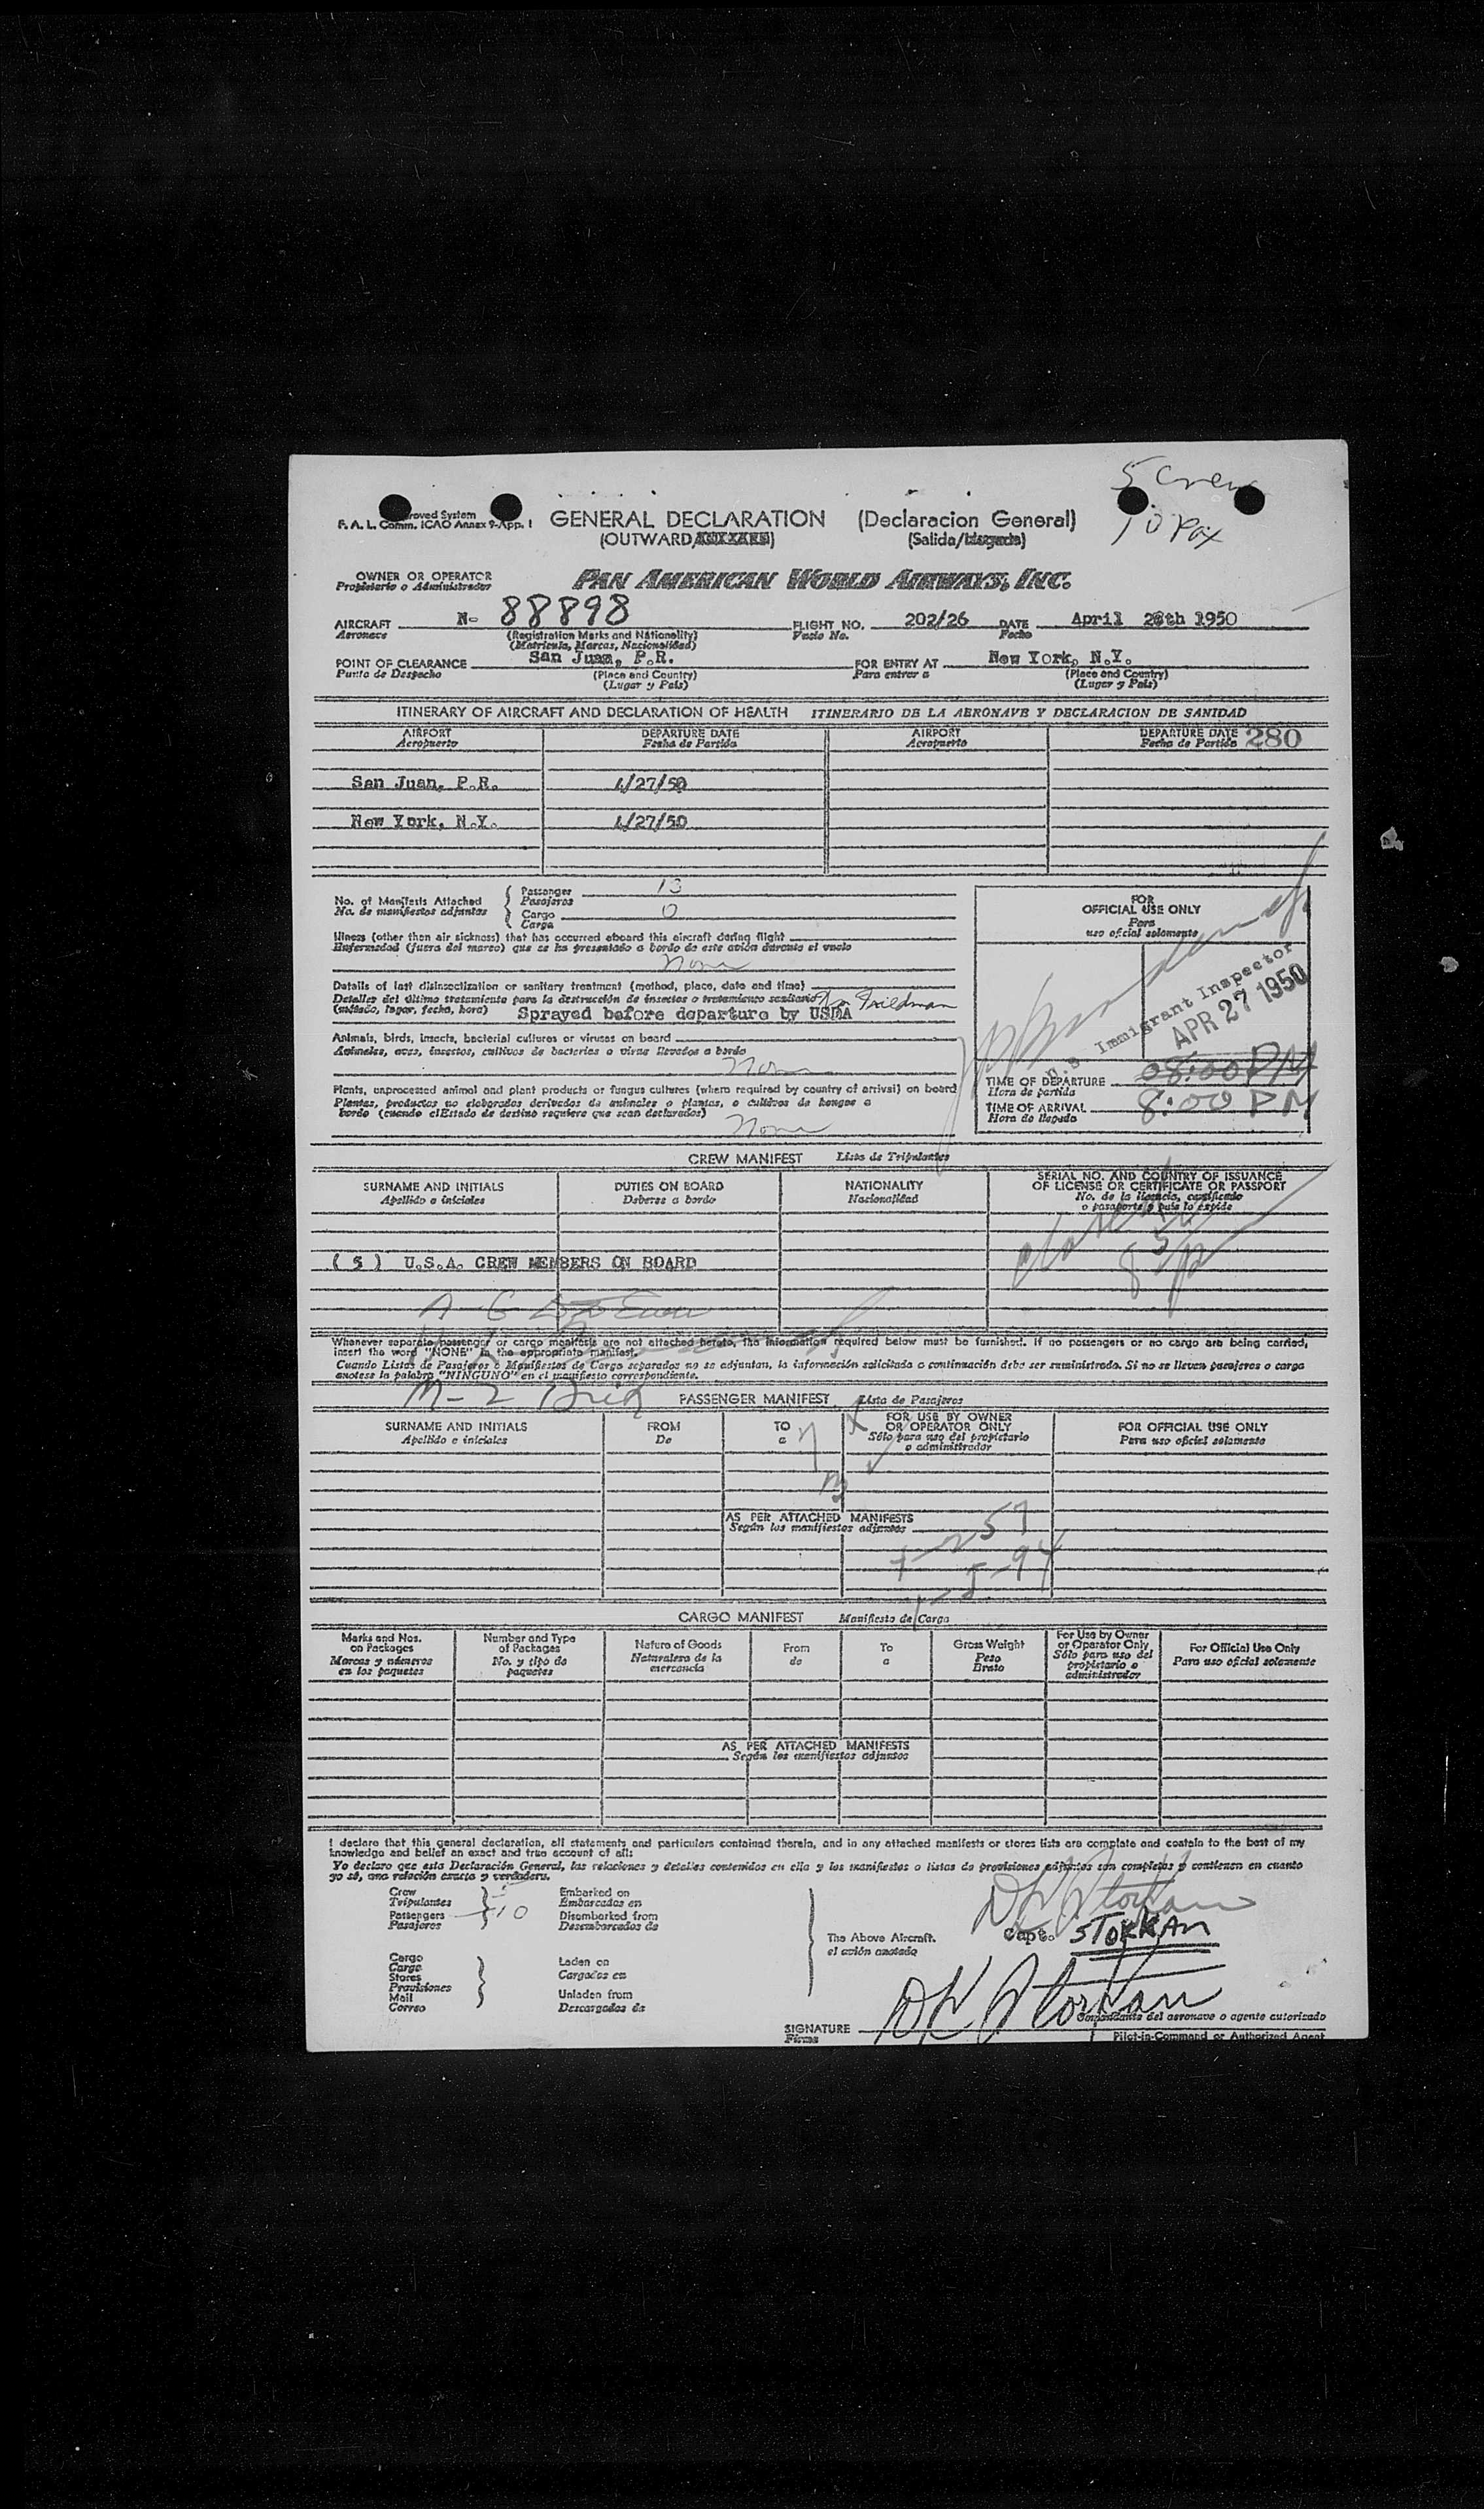 5 Crew
10 Pax
roved System
F. A. L. Comm. ICAO Annex 9-App. 1
GENERAL DECLARATION (Declaracion General)
(OUTWARD/ ) (Salida/ )
OWNER OR OPERATOR PAN AMERICAN WORLD AIRWAYS, INC.
Propietario o Administrador
AIRCRAFT N- 88898 FLIGHT NO. 202/26 DATE April 28th 1950
Aeronave (Registration Marks and Nationality) Vuelo No. Fecha
(Matricula, Marcas, Nacionalidad)
POINT OF CLEARANCE San Juan, P.R. FOR ENTRY AT New York, N.Y.
Punto de Despacho (Place and Country) Para entrar a (Place and Country)
(Lugar y Pais) (Lugar y Pais)
ITINERARY OF AIRCRAFT AND DECLARATION OF HEALTH ITINERARIO DE LA AERONAVE Y DECLARACION DE SANIDAD
AIRPORT DEPARTURE DATE AIRPORT DEPARTURE DATE 280
Aeropuerto Fecha de Partida Aeropuerto Fecha de Partida
San Juan, P.R. 4/27/50
New York, N.Y. 4/27/50
No. of Manifests Attached Passenger 13
No. de manifiestos adjuntos Pasajeros
Cargo 0
Carga
Illness (other than air sickness) that has occurred aboard this aircraft during flight
Enfermedad (fuera del mareo) que se ha presentado a bordo de este avión durante el vuelo
None
Details of last disinsectization or sanitary treatment (method, place, date and time)
Detalles del último tratamiento para la destrucción de insectos o tratamiento sanitario
(método, lugar, fecha, hora) Sprayed before departure by USDA Friedman
Animals, birds, insects, bacterial cultures or viruses on board
Animales, aves, insectos, cultivos de bacterias o virus llevados a bordo
None
Plants, unprocessed animal and plant products or fungus cultures (where required by country of arrival) on board
Plantas, productos no elaborados derivados de animales o plantas, o cultivos de hongos a
bordo (cuando el Estado de destino requiere que sean declarados)
None
FOR
OFFICIAL USE ONLY
Para
uso oficial solamente
U.S. Immigrant Inspector
APR 27 1950
TIME OF DEPARTURE 08:00 PM
Hora de partida
TIME OF ARRIVAL 8:00 PM
Hora de llegada
CREW MANIFEST Lista de Tripulantes
SURNAME AND INITIALS DUTIES ON BOARD NATIONALITY SERIAL NO. AND COUNTRY OF ISSUANCE
Apellido e iniciales Deberes a bordo Nacionalidad OF LICENSE OR CERTIFICATE OR PASSPORT
No. de la licencia, certificado
o pasaporte y pais lo expide
( 5 ) U.S.A. CREW MEMBERS ON BOARD
Whenever separate passenger or cargo manifests are not attached hereto, the information required below must be furnished. If no passengers or no cargo are being carried,
insert the word "NONE" in the appropriate manifest.
Cuando Listas de Pasajeros o Manifiestos de Carga separados no se adjuntan, la información solicitada a continuación debe ser suministrada. Si no se llevan pasajeros o carga
anotese la palabra "NINGUNO" en el manifiesto correspondiente.
PASSENGER MANIFEST Lista de Pasajeros
SURNAME AND INITIALS FROM TO FOR USE BY OWNER FOR OFFICIAL USE ONLY
Apellido e iniciales De a OR OPERATOR ONLY Para uso oficial solamente
Sólo para uso del propietario
o administrador
AS PER ATTACHED MANIFESTS
Según los manifiestos adjuntos
CARGO MANIFEST Manifiesto de Carga
Marks and Nos. Number and Type Nature of Goods From To Gross Weight For Use by Owner For Official Use Only
on Packages of Packages Naturaleza de la de a Peso or Operator Only Para uso oficial solamente
Marcas y números No. y tipo de mercancia Bruto Sólo para uso del
en los paquetes paquetes propietario o
administrador
AS PER ATTACHED MANIFESTS
Según los manifiestos adjuntos
I declare that this general declaration, all statements and particulars contained therein, and in any attached manifests or stores lists are complete and contain to the best of my
knowledge and belief an exact and true account of all:
Yo declaro que esta Declaración General, las relaciones y detalles contenidos en ella y los manifiestos o listas de provisiones adjuntos son completos y contienen en cuanto
yo sé, una relación exacta y verdadera.
Crew 5 Embarked on
Tripulantes Embarcados en
Passengers 10 Disembarked from
Pasajeros Desembarcados de
The Above Aircraft. Capt. STOKKAN
el avión anotado
Cargo Laden on
Carga Cargados en
Stores
Provisiones
Mail Unladen from
Correo Descargados de
SIGNATURE
Firma
Comandante del aeronave o agente autorizado
Pilot-in-Command or Authorized Agent